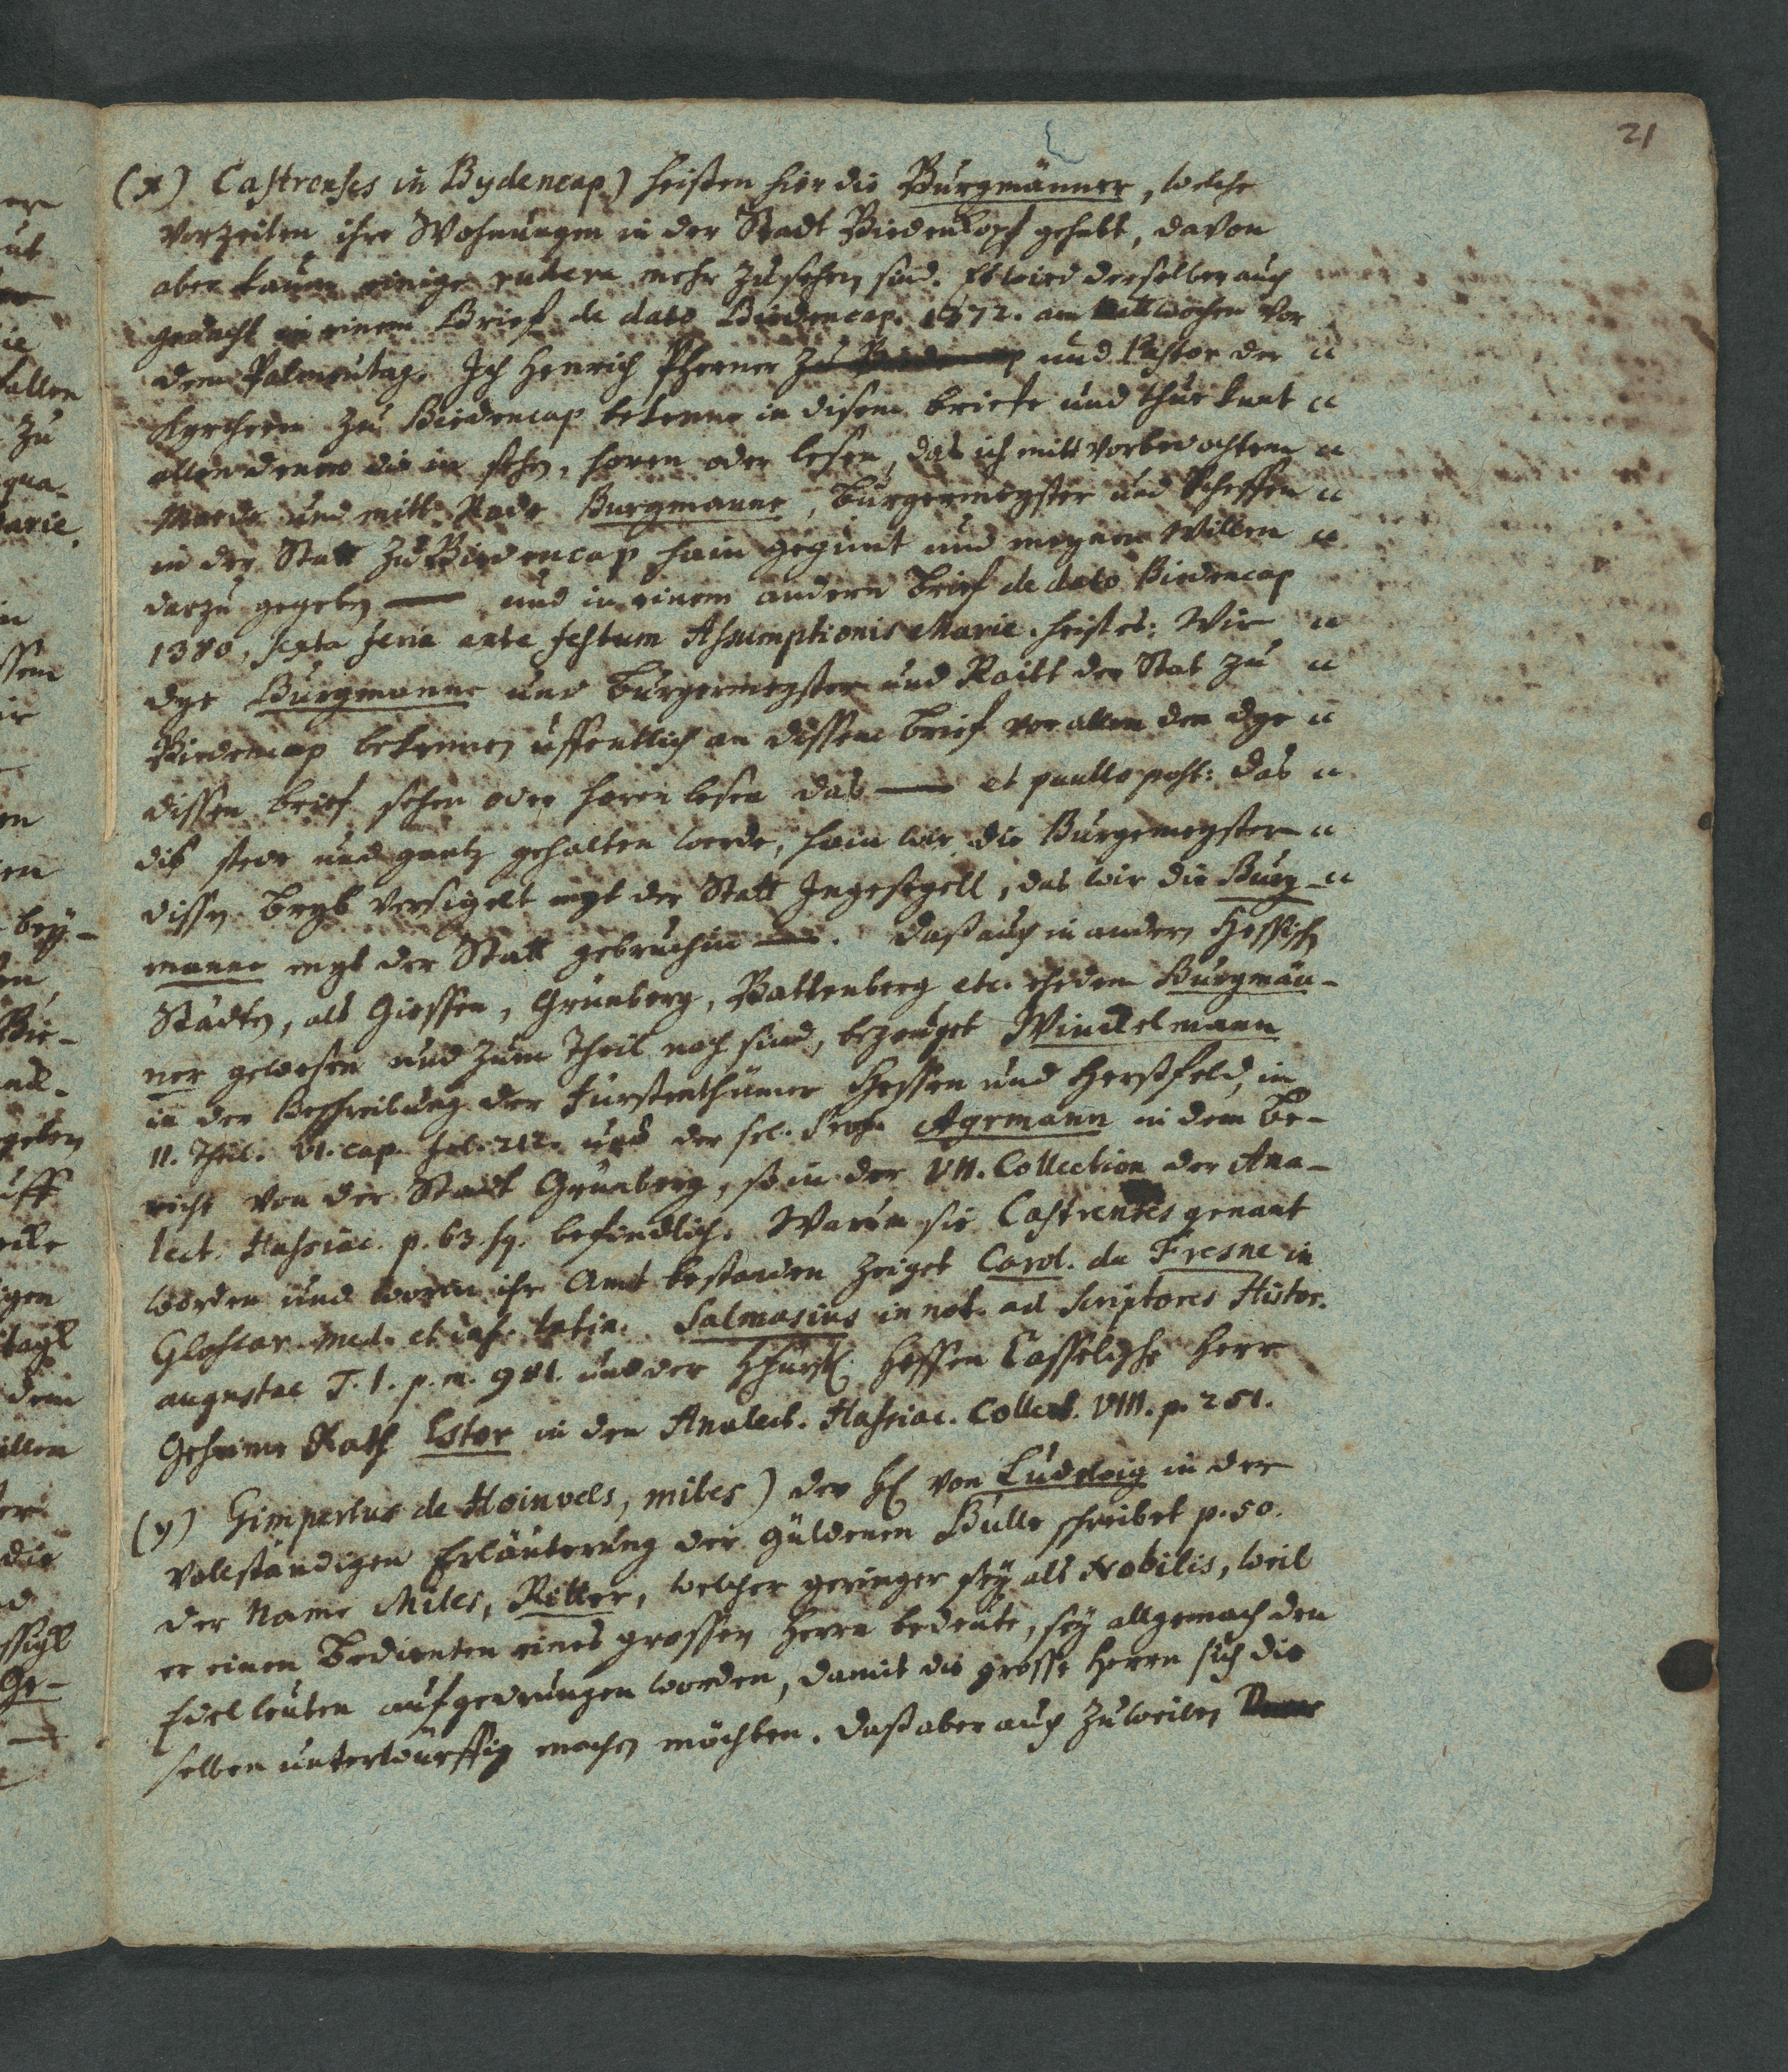 21
(x) Castrenses in Bydencap) heisten hier die Burgmänner, welche
vorzeiten ihre Wohnungen in der Stadt Biedenkopf gehabt, davon
aber kaum einige rudera mehr zu sehen sind. Es wird derselben auch
gedacht in einem Brief de dato Biedencap. 1372. am Mittwochen vor
dem Palmentag. Ich Henrich Pherner und Pastor der "
Kyrchenn zu Biedencap bekenne in disem briefe und thue kunt "
allen denen die in sehen, horen oder lesen, das ich mitt vorbedachtem "
Muede und mitt Rade Burgmanne, Burgermeyster und Scheffen "
in der Statt zu Biedencap hain gegunt und meynen Willen "
darzu gegeben — und in einem andern Brief de dato Biedencap
1380, sexta feria ante festum Assumptionis Marie. heist es: Wir "
dye Burgmanne und Burgermeyster und Raitt der Stat zu "
Biedencap bekennen uffentlich an dissem brief vor allen den dye "
dissen brief sehen oder horen lesen das — et paullo post: das "
diß stede und gantz gehalten werde, hain wir die Burgemeyster "
dissen Bryb versigelt myt der Statt Ingesegell, das wir die Burg- "
manne myt der Statt gebruchin —. Daß auch in andern Hessischen
Städten, als Giessen, Grünberg, Battenberg etc. ehedem Burgmän-
ner gewesen und zum Theil noch sind, bezeuget Winckelmann
in der Beschreibung der Fürstenthümer Hessen und Herßfeld, in
II. Theil. VI. cap. fol. 212. und der sel. Prof. Ayrmann in dem Be-
richt von der Stadt Grünberg, so in der VII. Collection der Ana-
lect. Hassiac. p. 63. sq. befindlich. Warum sie Castrenses genant
worden und worin ihr Amt bestanden zeiget Carol. du Fresne in
Glossar. med. et inf. latin. Salmasius in not. ad Scriptores Histor.
augustae T. I. p. m. 981. und der Hessen Casselische Herr
Geheime Rath Estor in den Analect. Hassiac. Collect. VIII. p. 251.
(y) Gimpertus de Hoinvels, miles) der H. von Ludwig in der
vollständigen Erläuterung der güldenen Bulle schreibet p. 50.
der Name Miles, Ritter, welcher geringer sey als Nobilis, weil
er einen Bedienten eines grossen Herrn bedeute, sey allgemach den
Edelleuten aufgedrungen worden, damit die grosse Herrn sich die
selben unterwürffig machen möchten. Daß aber auch zuweilen